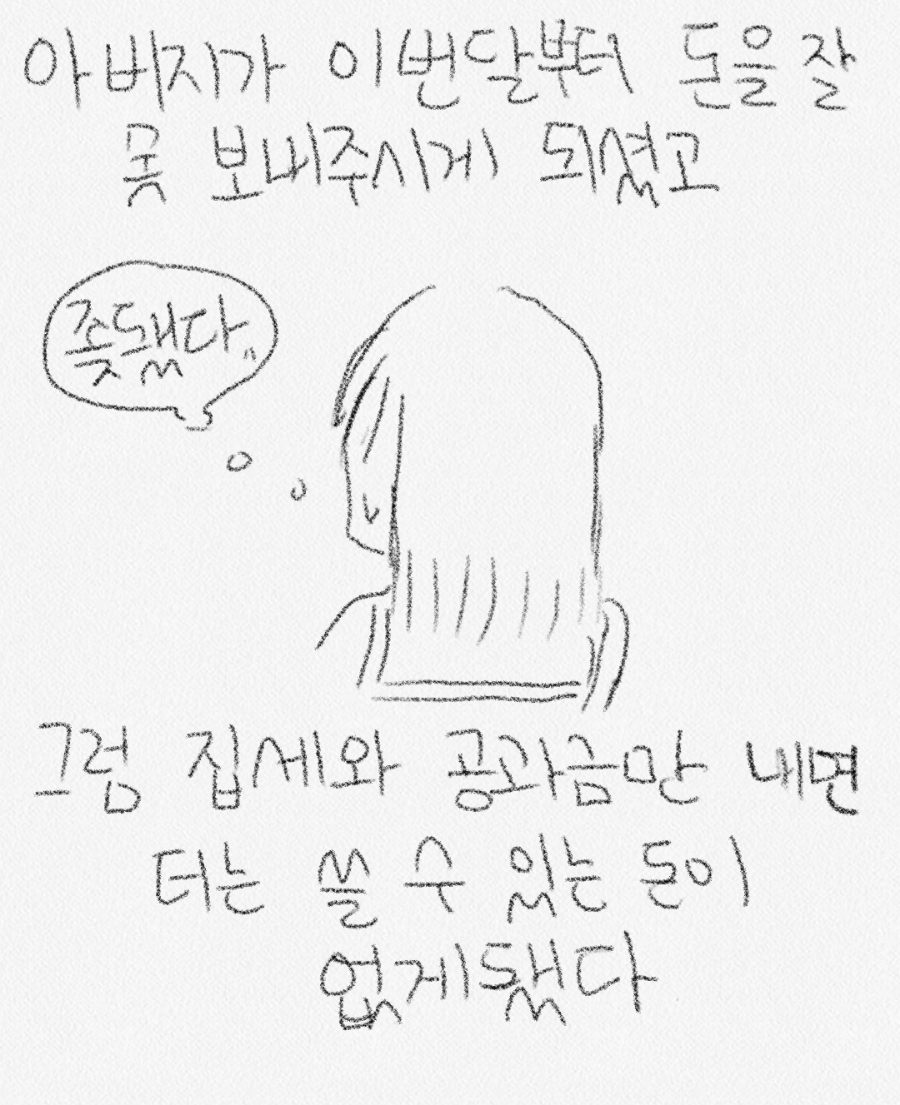 아버지가 이번달부터 돈을 잘
못 보내주시게 되셨고
좆됐다..
그럼 집세와 공과금만 내면
더는 쓸 수 있는 돈이
없게됐다